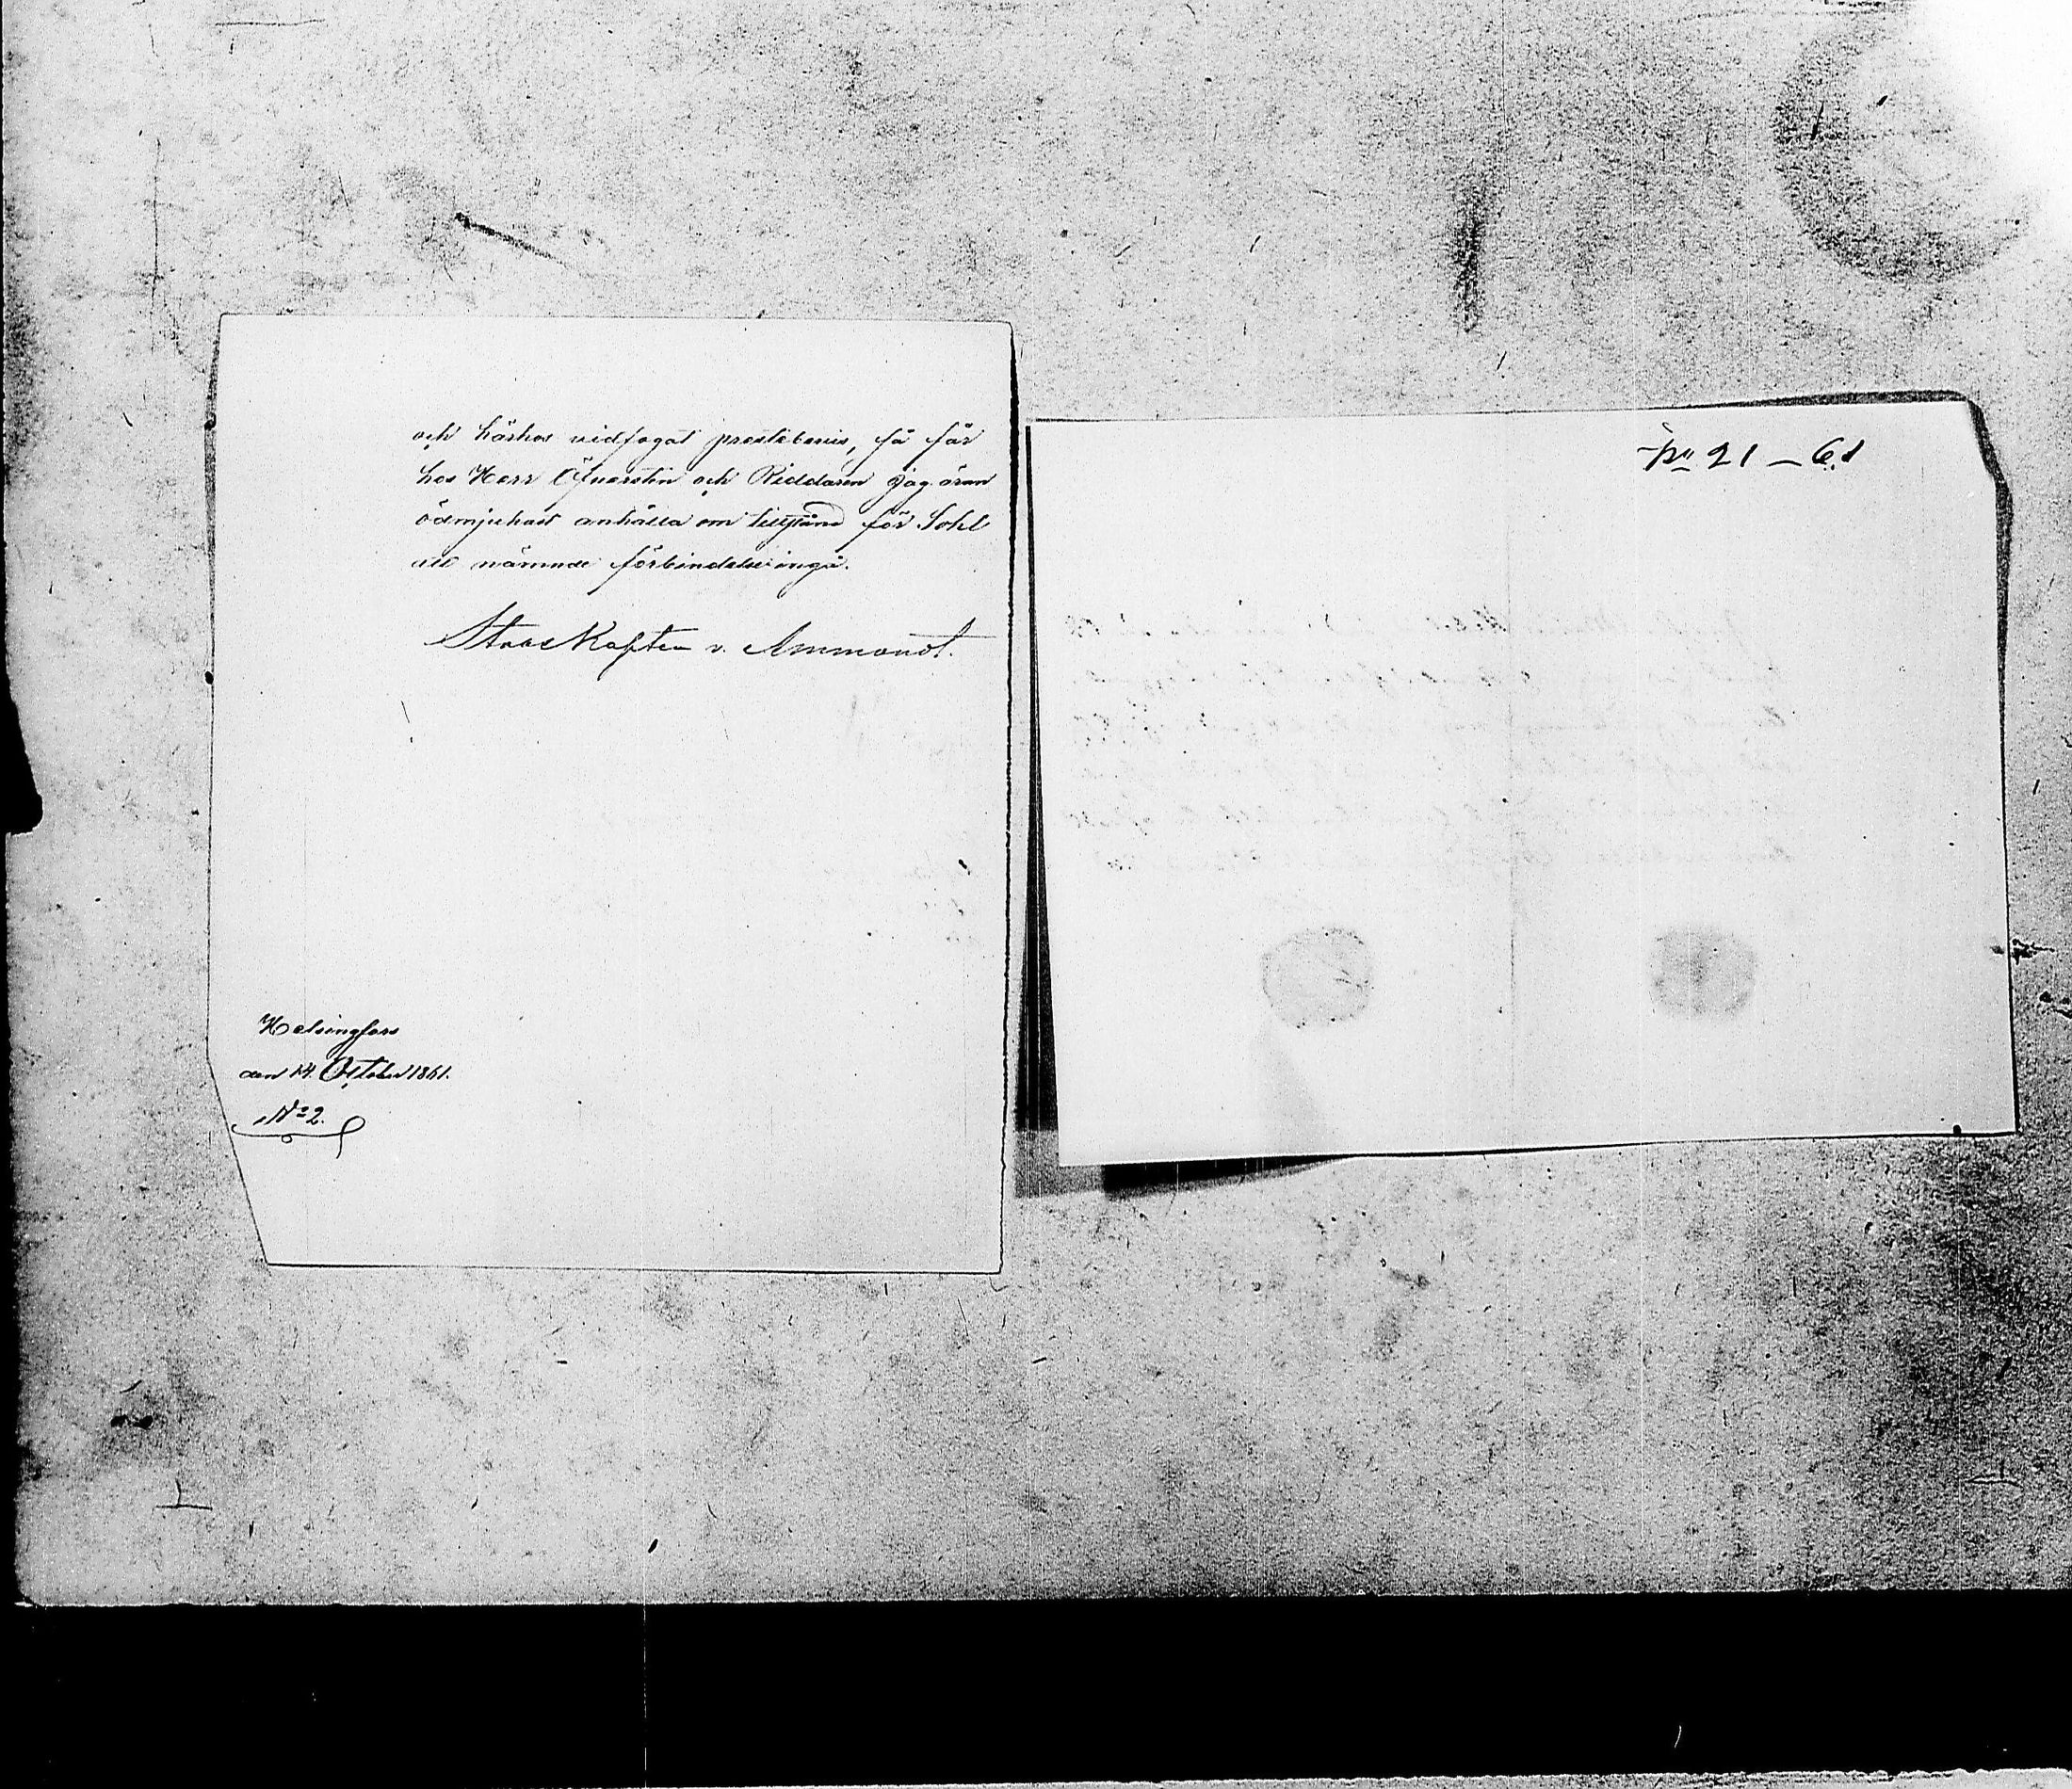 och härhos vidfogat prestebevis, få får
hos Herr Öfversten och Riddaren jag äran
ödmjukast anhålla om tillstånd för Sohl
att nämnde förbindelse ingå.
Stabs Kapten v. Ammondt.
Helsingfors
den 14. October 1861.
N:o 2.
No 21 — 61